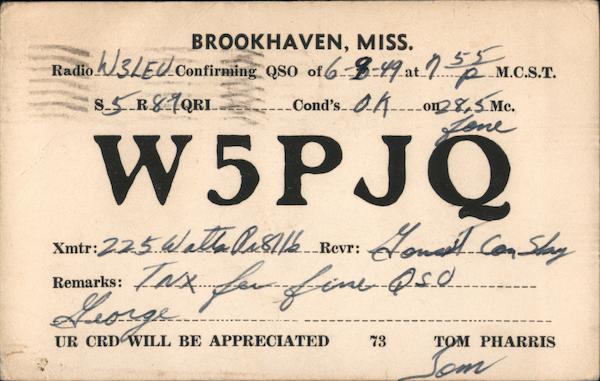 BROOKHAVEN, MISS.
Radio W3LEU Confirming QSO of 6-9-49 at 7 55 P M.C.S.T.
S 5 R 89 QRI Cond's OK on 28.5 Mc.
fone
W5PJQ
Xmtr: 225 Watts Rcvr: Gonset Con
Remarks: TNX for fine QSO
George
UR CRD WILL BE APPRECIATED 73 TOM PHARRIS
Tom